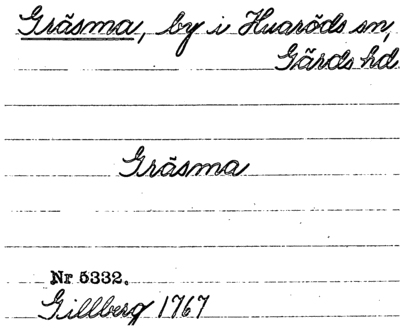 Gräsma, by i Huaröds sn,
Gärds hd
Gräsma
Nr 5332.
Gillberg 1767